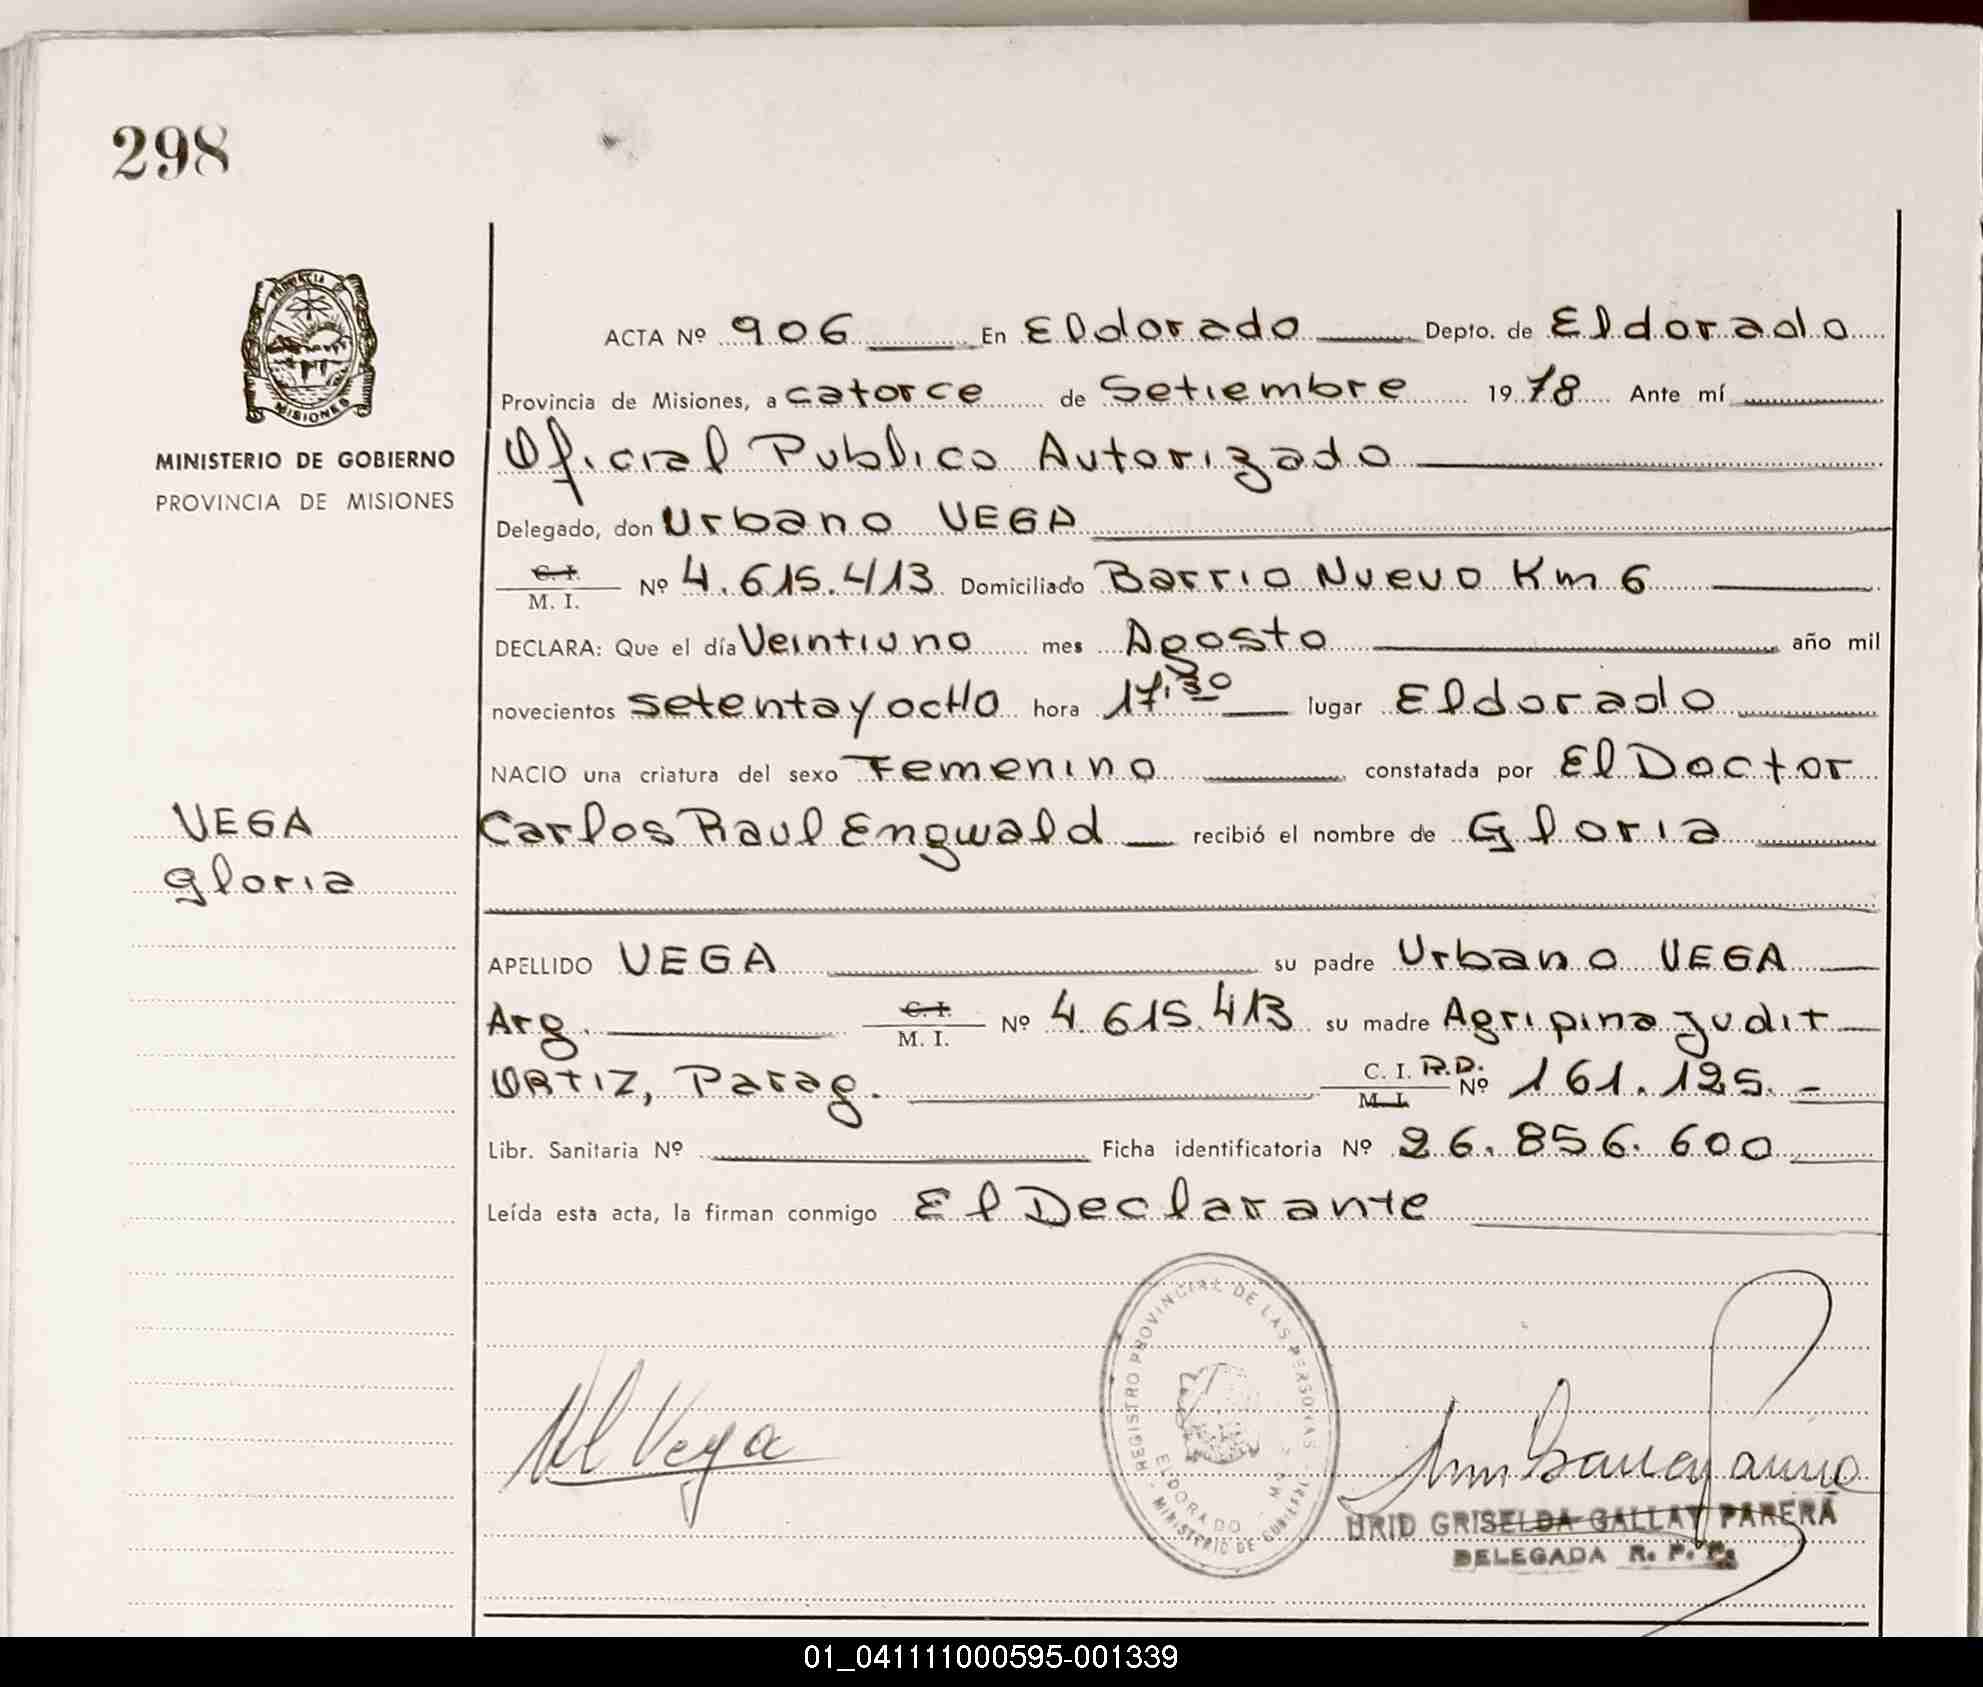 298
PROVINCIA DE
MISIONES
MINISTERIO DE GOBIERNO
PROVINCIA DE MISIONES
VEGA
Gloria
ACTA Nº 906 En Eldorado Depto. de Eldorado
Provincia de Misiones, a catorce de Setiembre 1978 Ante mí
Oficial Publico Autorizado
Delegado, don Urbano VEGA
C. I.
M. I. Nº 4.615.413 Domiciliado Barrio Nuevo Km 6
DECLARA: Que el día Veintiuno mes Agosto año mil
novecientos setenta y ocHo hora 17.30 lugar Eldorado
NACIO una criatura del sexo Femenino constatada por El Doctor
Carlos Raul Engwald recibió el nombre de Gloria
APELLIDO VEGA su padre Urbano VEGA
Arg. C. I.
M. I. Nº 4.615.413 su madre Agripina Judit
ORTIZ, Parag. C. I. R.P.
M. I. Nº 161.125.-
Libr. Sanitaria Nº Ficha identificatoria Nº 26.856.600
Leída esta acta, la firman conmigo El Declarante
REGISTRO PROVINCIAL DE LAS PERSONAS
ELDORADO
MINISTERIO DE GOBIERNO
Vega
GRISELDA GALLAY PARERA
DELEGADA R. P. P.
01_041111000595-001339